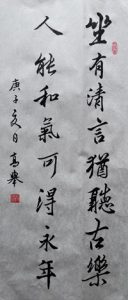 坐有清言猶聽古樂
人能和氣可得永年
庚子冬日高舉